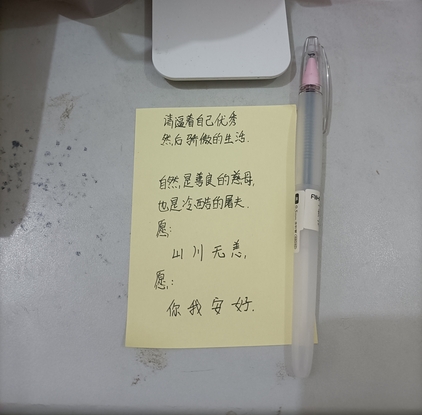 请逼着自己优秀
然后骄傲的生活.
自然,是善良的慈母,
也是冷酷的屠夫.
愿:
山川无恙,
愿:
你我安好.